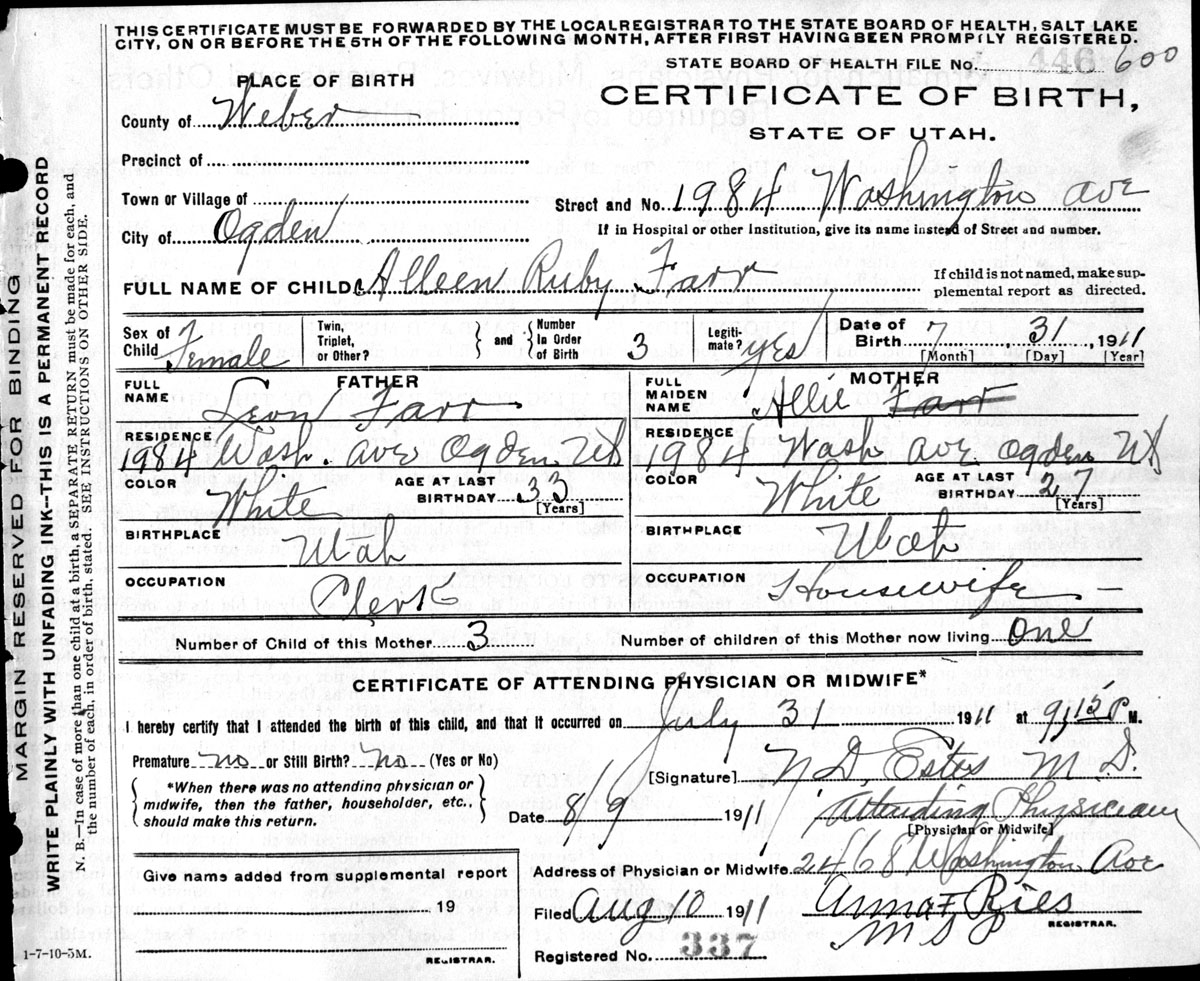 THIS CERTIFICATE MUST BE FORWARDED BY THE LOCAL REGISTRAR TO THE STATE BOARD OF HEALTH, SALT LAKE
CITY, ON OR BEFORE THE 5TH OF THE FOLLOWING MONTH, AFTER FIRST HAVING BEEN PROMPTLY REGISTERED.
STATE BOARD OF HEALTH FILE No. 446 600
PLACE OF BIRTH
CERTIFICATE OF BIRTH,
STATE OF UTAH.
County of Weber
Precinct of
Town or Village of
Street and No. 1984 Washington ave
City of Ogden
If in Hospital or other Institution, give its name instead of Street and number.
FULL NAME OF CHILD Alleen Ruby Farr
If child is not named, make sup-
plemental report as directed.
Sex of Child Female
Twin, Triplet, or Other?
and
Number In Order of Birth 3
Legiti-mate? yes
Date of Birth 7 31, 1911
[Month] [Day] [Year]
FATHER
FULL NAME Leon Farr
RESIDENCE 1984 Wash. ave Ogden Ut
COLOR White
AGE AT LAST BIRTHDAY 33
[Years]
BIRTHPLACE Utah
OCCUPATION Clerk
MOTHER
FULL MAIDEN NAME Allie Farr
RESIDENCE 1984 Wash ave Ogden Ut
COLOR White
AGE AT LAST BIRTHDAY 27
[Years]
BIRTHPLACE Utah
OCCUPATION Housewife
Number of Child of this Mother 3
Number of children of this Mother now living One
CERTIFICATE OF ATTENDING PHYSICIAN OR MIDWIFE*
I hereby certify that I attended the birth of this child, and that it occurred on July 31 1911 at 9:15 P M.
Premature no or Still Birth? no (Yes or No)
[Signature] N. D. Estes M. D.
*When there was no attending physician or
midwife, then the father, householder, etc.,
should make this return.
Date 8/9 1911
Attending Physician
[Physician or Midwife]
Address of Physician or Midwife 2468 Washington Ave
Give name added from supplemental report
19
REGISTRAR.
Filed Aug 10 1911
Ries
REGISTRAR.
Registered No. 337
1-7-10-5M.
MARGIN RESERVED FOR BINDING
WRITE PLAINLY WITH UNFADING INK--THIS IS A PERMANENT RECORD
N. B.—In case of more than one child at a birth, a SEPARATE RETURN must be made for each, and
the number of each, in order of birth, stated. SEE INSTRUCTIONS ON OTHER SIDE.